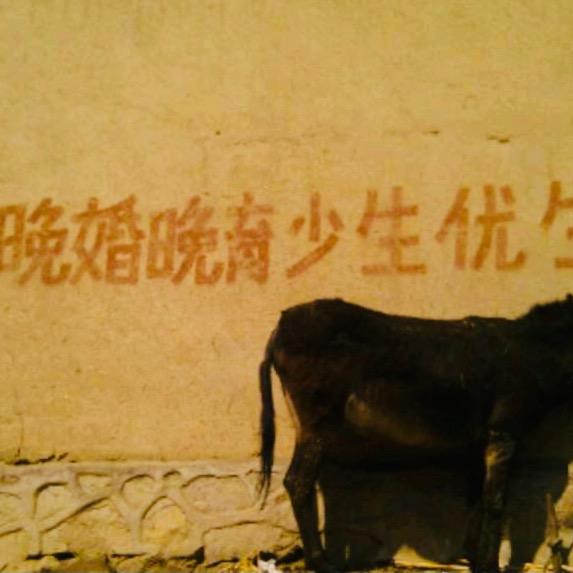 晚婚晚育少生优生